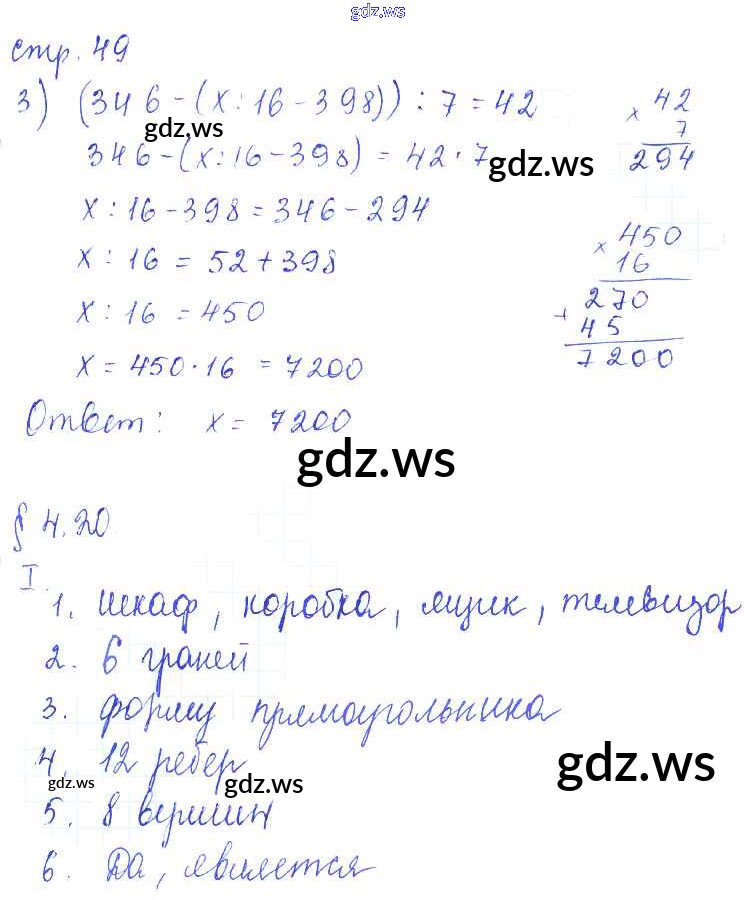 gdz.ws
стр. 49
3) (346-(x:16-398)):7=42
gdz.ws
346-(x:16-398)=42·7
gdz.ws
x:16-398=346-294
x:16=52+398
x:16=450
x=450·16=7200
Ответ: x=7200
× 42
7
294
× 450
16
270
+ 45
7200
gdz.ws
§ 4.20
I.
1. шкаф, коробка, ящик, телевизор
2. 6 граней
3. форму прямоугольника
4. 12 ребер
gdz.ws
gdz.ws
gdz.ws
5. 8 вершин
6. Да, является